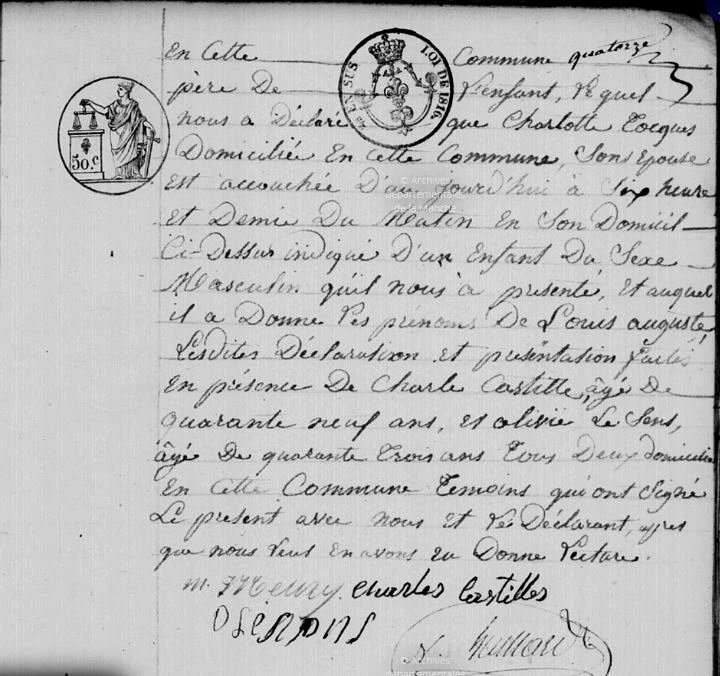 En Cette Commune quatorze
père De l'enfant, lequel
nous a Déclaré que Charlotte Tocques
Domiciliée En Cette Commune, Son Epouse
Est accouchée D'aujourd'hui à Six heure
Et Demie Du Matin En Son Domicil
Ci-Dessus indiqué D'un Enfant Du Sexe
Masculin qu'il nous a presenté, Et auquel
il a Donné Les prénoms De Louis auguste,
Lesdites Déclaration et présentation faites
En présence De Charle Castille, âgé De
quarante neuf ans, Et olivié Le Sens,
âgé De quarante Trois ans Tous Deux domicilié
En Cette Commune Temoins qui ont Signé
Le present avec nous Et Le Déclarant, apres
que nous leus En avons eu Donné Lecture.
Charles Castilles
EN SUS
LOI DE 1816.
50.c
© Archives
départementales
de la Manche
© Archives
départementales